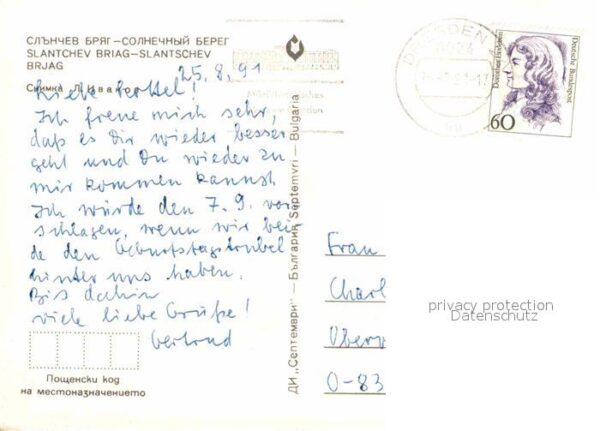 СЛЪНЧЕВ БРЯГ—СОЛНЕЧНЫЙ БЕРЕГ
SLANTCHEV BRIAG—SLANTSCHEV
BRJAG
Снимка Л. Иванов
25.8.91
Ich freue mich sehr,
daß es Dir wieder besser
geht und Du wieder zu
mir kommen kannst.
Ich würde den 7. 9. vor
schlagen, wenn wir bei
de den Geburtstagstrubel
hinter uns haben.
Bis dahin
viele liebe Grüße!
Gertrud
Пощенски код
на местоназначението
ДИ „Септември" — България Septemvri — Bulgaria
DRESDEN
8024
Dorothea Erxleben
Deutsche Bundespost
60
Frau
Charl
O-83
privacy protection
Datenschutz